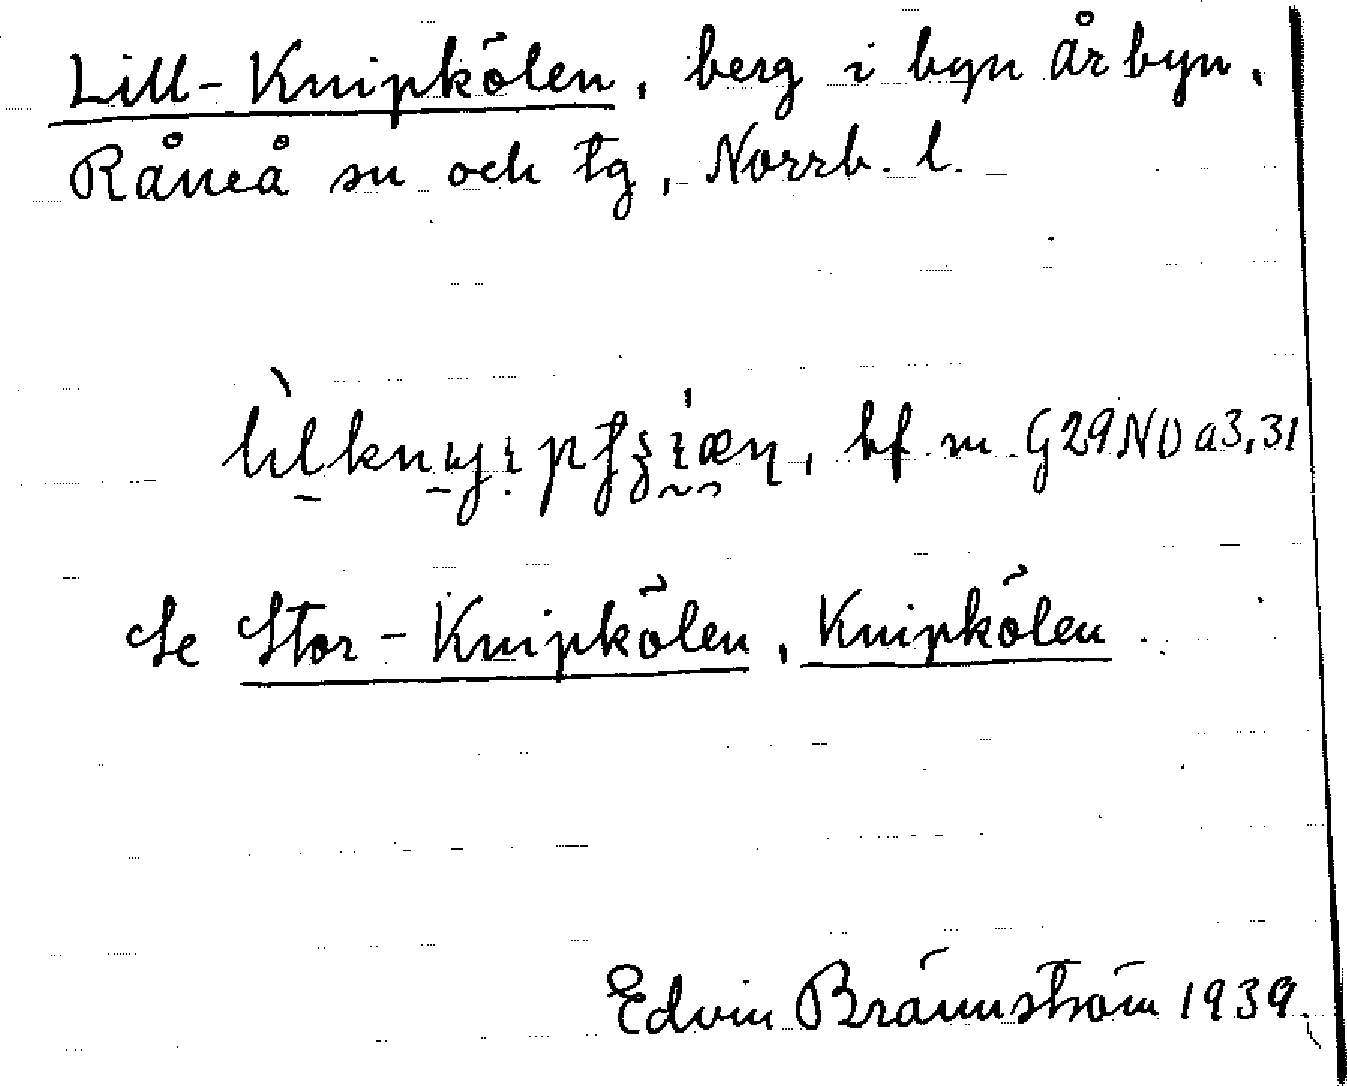 Lill-Knipkölen, berg i byn Årbyn,
Råneå sn och tg, Norrb. l.
bf m G29NO a3,31
Se Stor-Knipkölen, Knipkölen.
Edvin Brännström 1939.